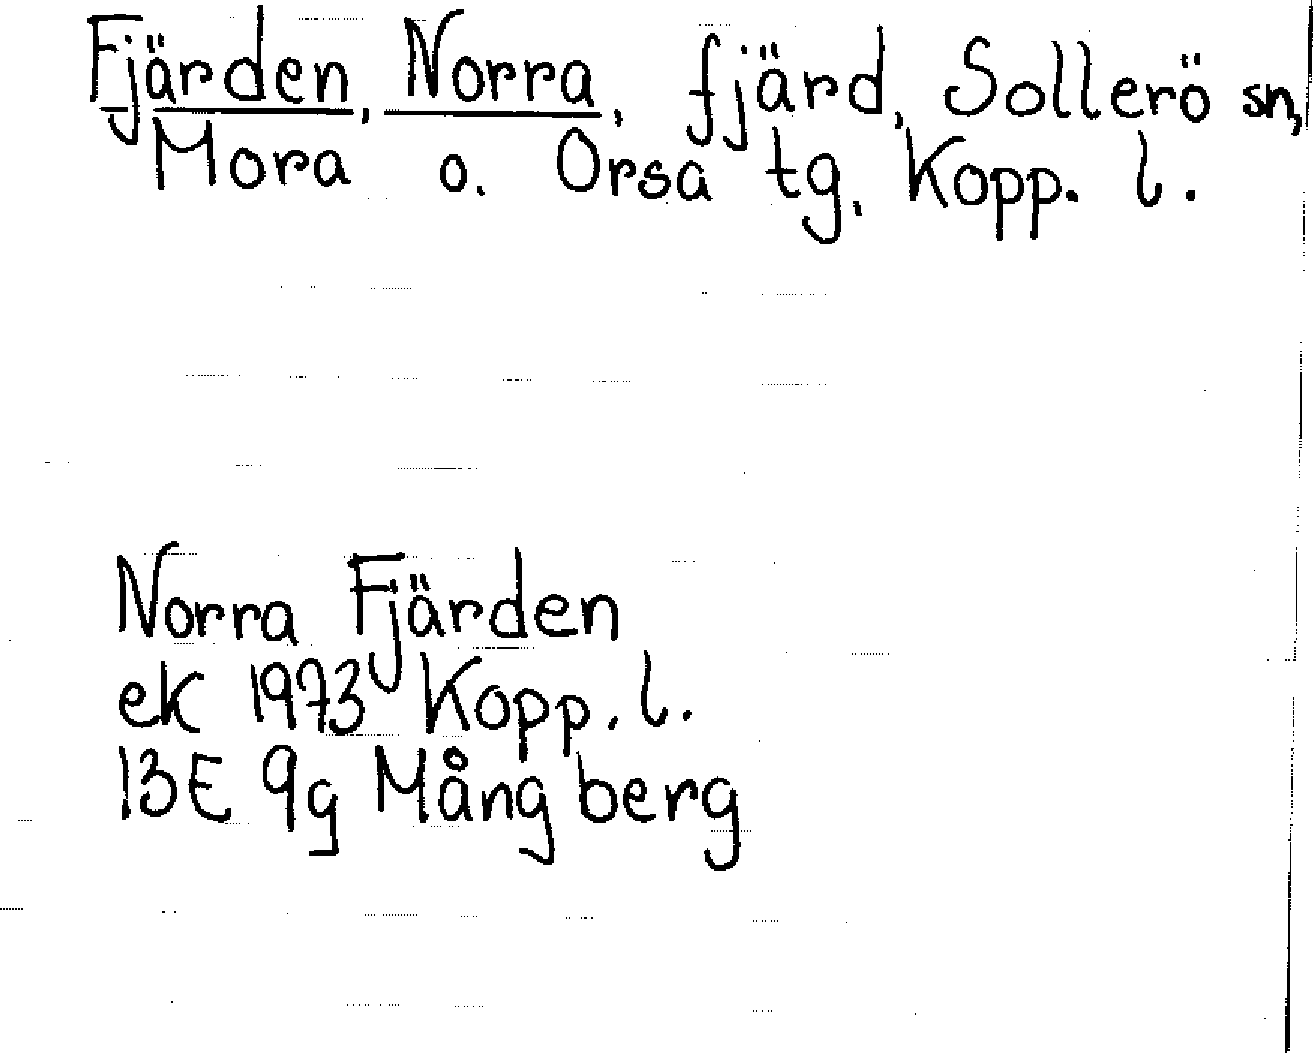 Fjärden, Norra, fjärd, Sollerö sn,
Mora o. Orsa tg, Kopp. l.
Norra Fjärden
ek 1973 Kopp. l.
13E 9g Mångberg